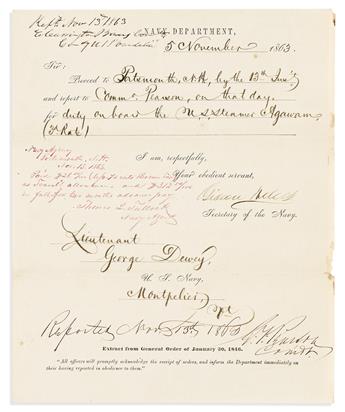 Rept. Nov 13th 1863
NAVY DEPARTMENT,
5 November 1863.
Sir:
Proceed to Portsmouth, N.H., by the 13th Inst.
and report to Commo. Pearson, on that day
for duty on board the U.S. Steamer Agawam
(3d Rate)
I am, respectfully,
Your obedient servant,
Gideon Welles
Secretary of the Navy.
Navy Agency
Portsmouth, N.H.
Nov. 13. 1863
Navy Agent
Lieutenant
George Dewey,
U. S. Navy,
Montpelier,
Vt
Reported Nov 13th 1863
G. F. Pearson
Comdt.
Extract from General Order of January 20, 1846.
"All officers will promptly acknowledge the receipt of orders, and inform the Department immediately on
their having reported in obedience to them."